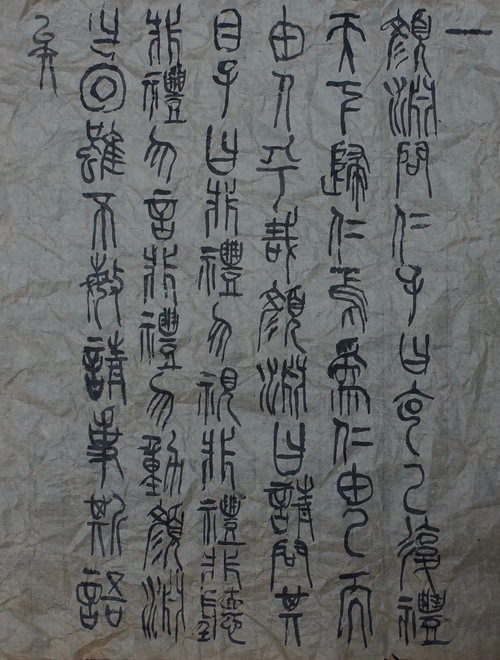 一
顏淵問仁子曰克己復禮
天下歸仁焉為仁由己而
由人乎哉顏淵曰請問其
目子曰非禮勿視非禮聽
非禮勿言非禮勿動顏淵
曰回雖不敏請事斯語
矣